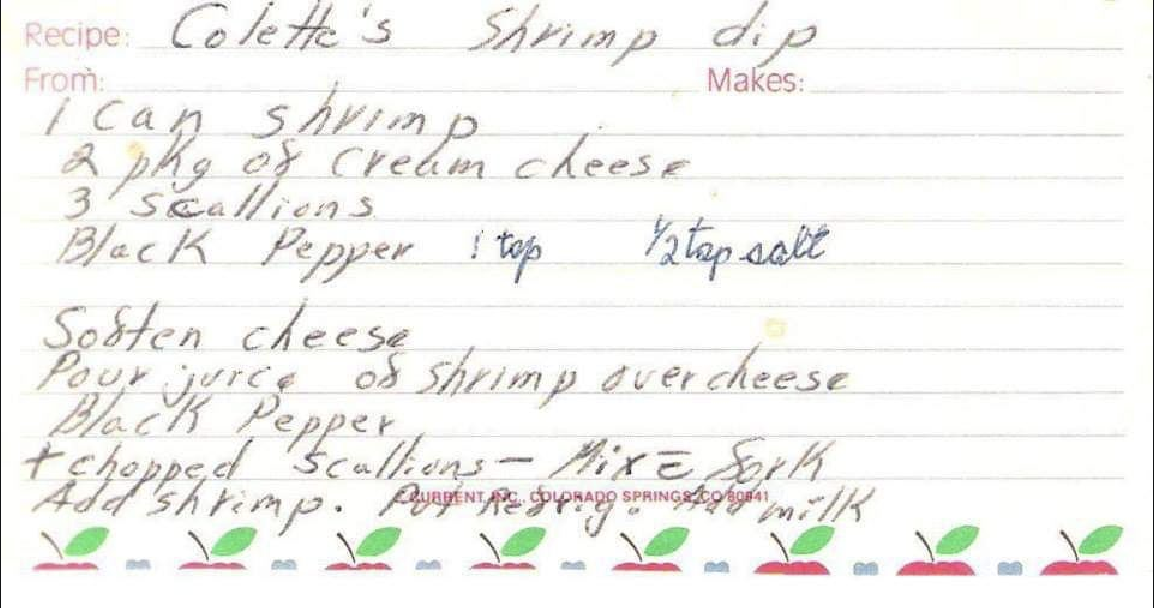 Recipe: Colette's Shrimp dip
From: Makes:
1 Can shrimp
2 pkg of Cream cheese
3 Scallions
Black Pepper 1 tsp 1/2 tsp salt
Soften cheese
Pour juice of shrimp over cheese
Black Pepper
+ chopped scallions – Mix c̄ fork
Add shrimp. Put Refrig. Add milk
CURRENT, INC., COLORADO SPRINGS, CO 80941